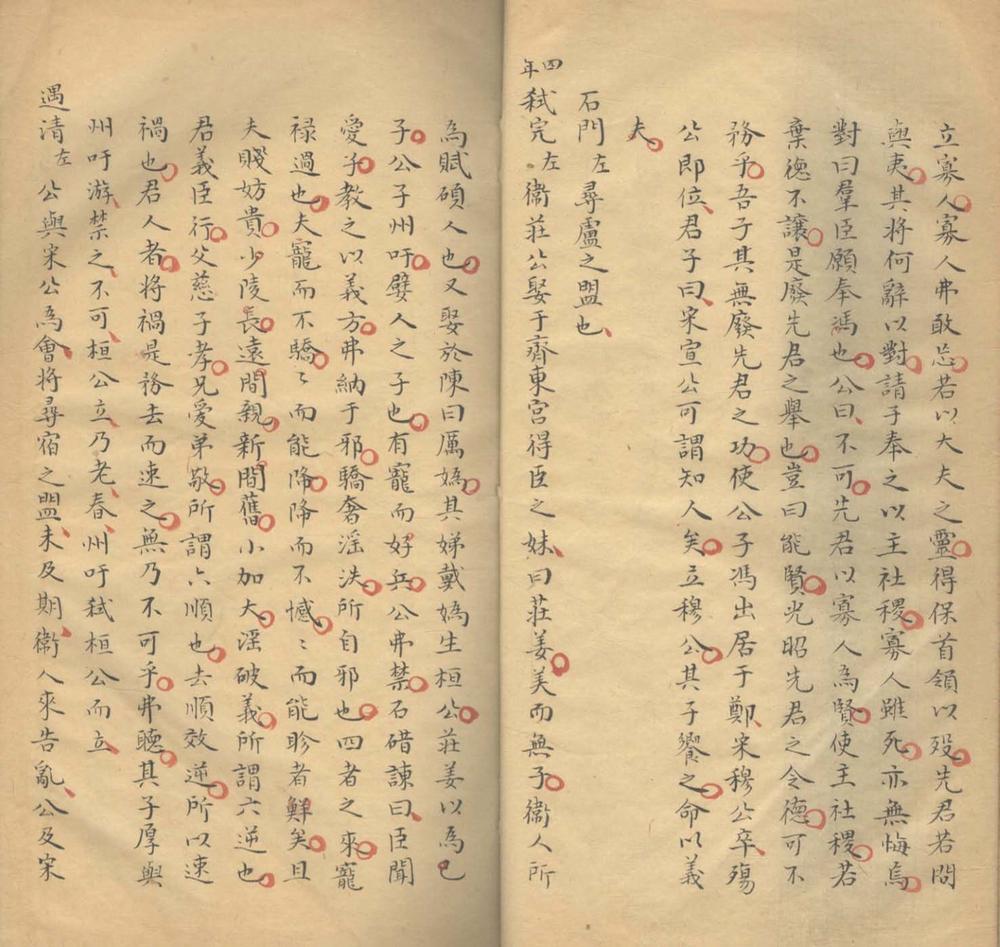 立寡人寡人弗敢忘若以大夫之靈得保首領以歿先君若問
與夷其將何辭以對請子奉之以主社稷寡人雖死亦無悔焉
對曰羣臣願奉馮也公曰不可先君以寡人為賢使主社稷若
棄德不讓是廢先君之舉也豈曰能賢光昭先君之令德可不
務乎吾子其無廢先君之功使公子馮出居于鄭宋穆公卒殤
公即位君子曰宋宣公可謂知人矣立穆公其子饗之命以義
夫
石門左尋盧之盟也
四年弒完左衞莊公娶于齊東宮得臣之妹曰莊姜美而無子衞人所
為賦碩人也又娶於陳曰厲媯其娣戴媯生桓公莊姜以為已
子公子州吁嬖人之子也有寵而好兵公弗禁石碏諫曰臣聞
愛子教之以義方弗納于邪驕奢淫泆所自邪也四者之來寵
祿過也夫寵而不驕〻而能降降而不憾〻而能眕者鮮矣且
夫賤妨貴少陵長遠間親新間舊小加大淫破義所謂六逆也
君義臣行父慈子孝兄愛弟敬所謂六順也去順效逆所以速
禍也君人者將禍是務去而速之無乃不可乎弗聽其子厚與
州吁游禁之不可桓公立乃老春州吁弒桓公而立
遇清左公與宋公為會將尋宿之盟未及期衞人來告亂公及宋